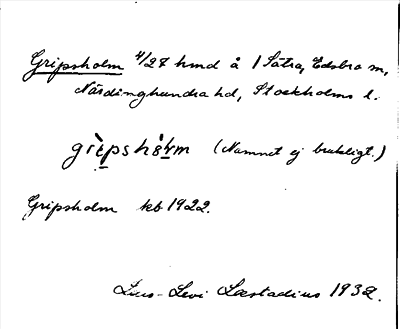 Gripsholm 4/27 hmd å 1 Sätra, Edsbro sn,
Närdinghundra hd, Stockholms l.
(Namnet ej brukligt.)
Gripsholm kb 1922.
Lars-Levi Læstadius 1932.